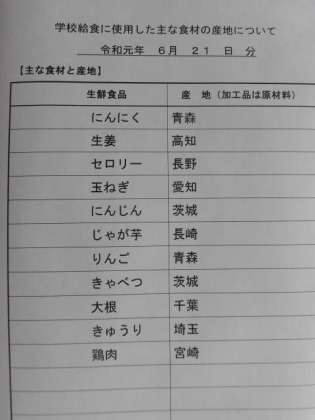 学校給食に使用した主な食材の産地について
令和元年 6月 21 日 分
【主な食材と産地】
生鮮食品 産 地（加工品は原材料）
にんにく 青森
生姜 高知
セロリー 長野
玉ねぎ 愛知
にんじん 茨城
じゃが芋 長崎
りんご 青森
きゃべつ 茨城
大根 千葉
きゅうり 埼玉
鶏肉 宮崎